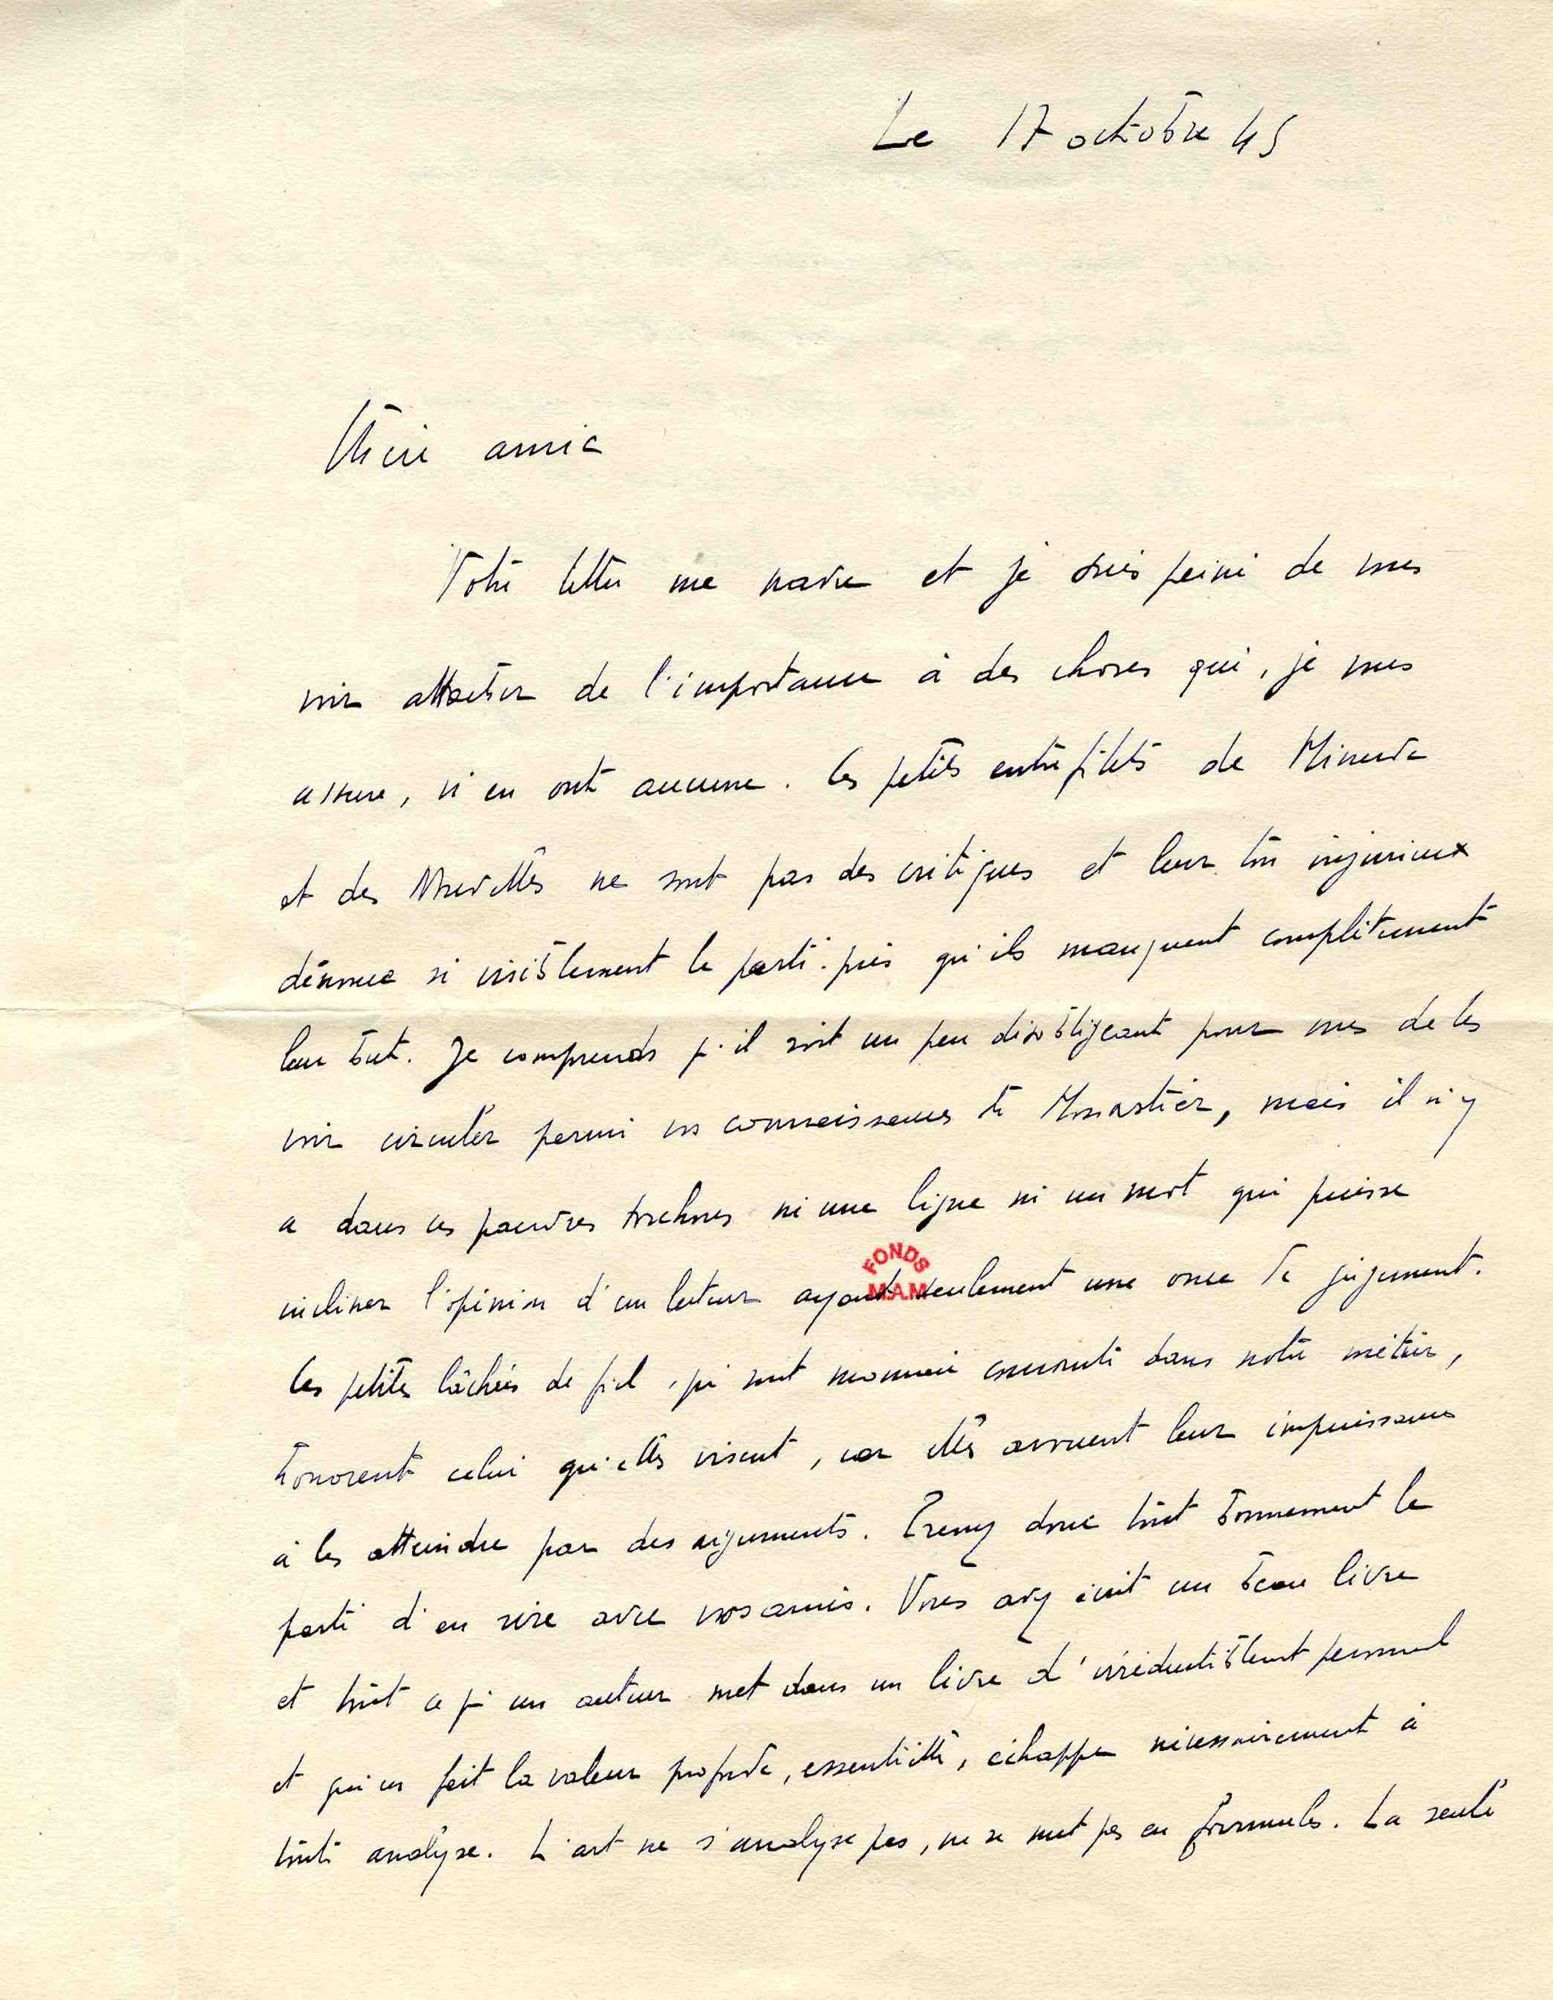 Le 17 octobre 45
Chère amie
Votre lettre me navre et je suis peiné de vous
voir attacher de l'importance à des choses qui, je vous
assure, n'en ont aucune. Ces petits entrefilets de Minerve
et des Nouvelles ne sont pas des critiques et leur ton injurieux
dénonce si visiblement le parti-pris qu'ils manquent complètement
leur but. Je comprends qu'il soit un peu désobligeant pour vous de les
voir circuler parmi vos connaissances du Monastier, mais il n'y
a dans ces pauvres torchons ni une ligne ni un mot qui puisse
incliner l'opinion d'un lecteur ayant seulement une once de jugement.
FONDS
M.A.M
Ces petites lâchées de fiel, qui sont monnaie courante dans notre métier,
honorent celui qu'elles visent, car elles avouent leur impuissance
à les atteindre par des arguments. Prenez donc tout bonnement le
parti d'en rire avec vos amis. Vous avez écrit un beau livre
et tout ce qu'un auteur met dans un livre d'irréductiblement personnel
et qui en fait la valeur profonde, essentielle, échappe nécessairement à
toute analyse. L'art ne s'analyse pas, ne se met pas en formules. La seule